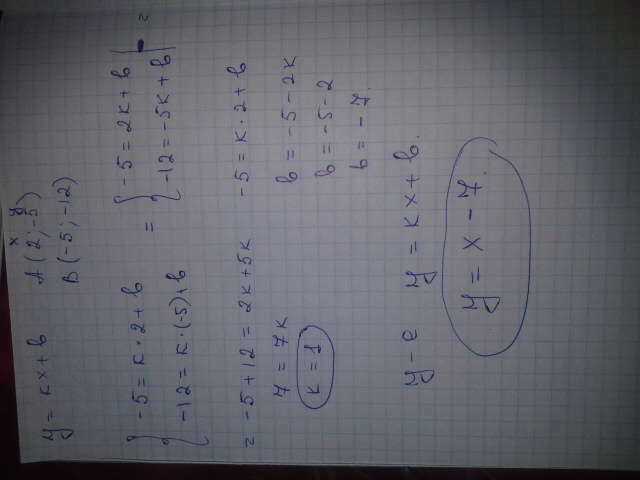 x y
y = kx + b A(2; -5)
B(-5; -12)
{ -5 = k · 2 + b = { -5 = 2k + b | - =
-12 = k · (-5) + b -12 = -5k + b
= -5 + 12 = 2k + 5k -5 = k · 2 + b
7 = 7k b = -5 - 2k
k = 1 b = -5 - 2
b = -7.
y-e y = kx + b.
y = x - 7.